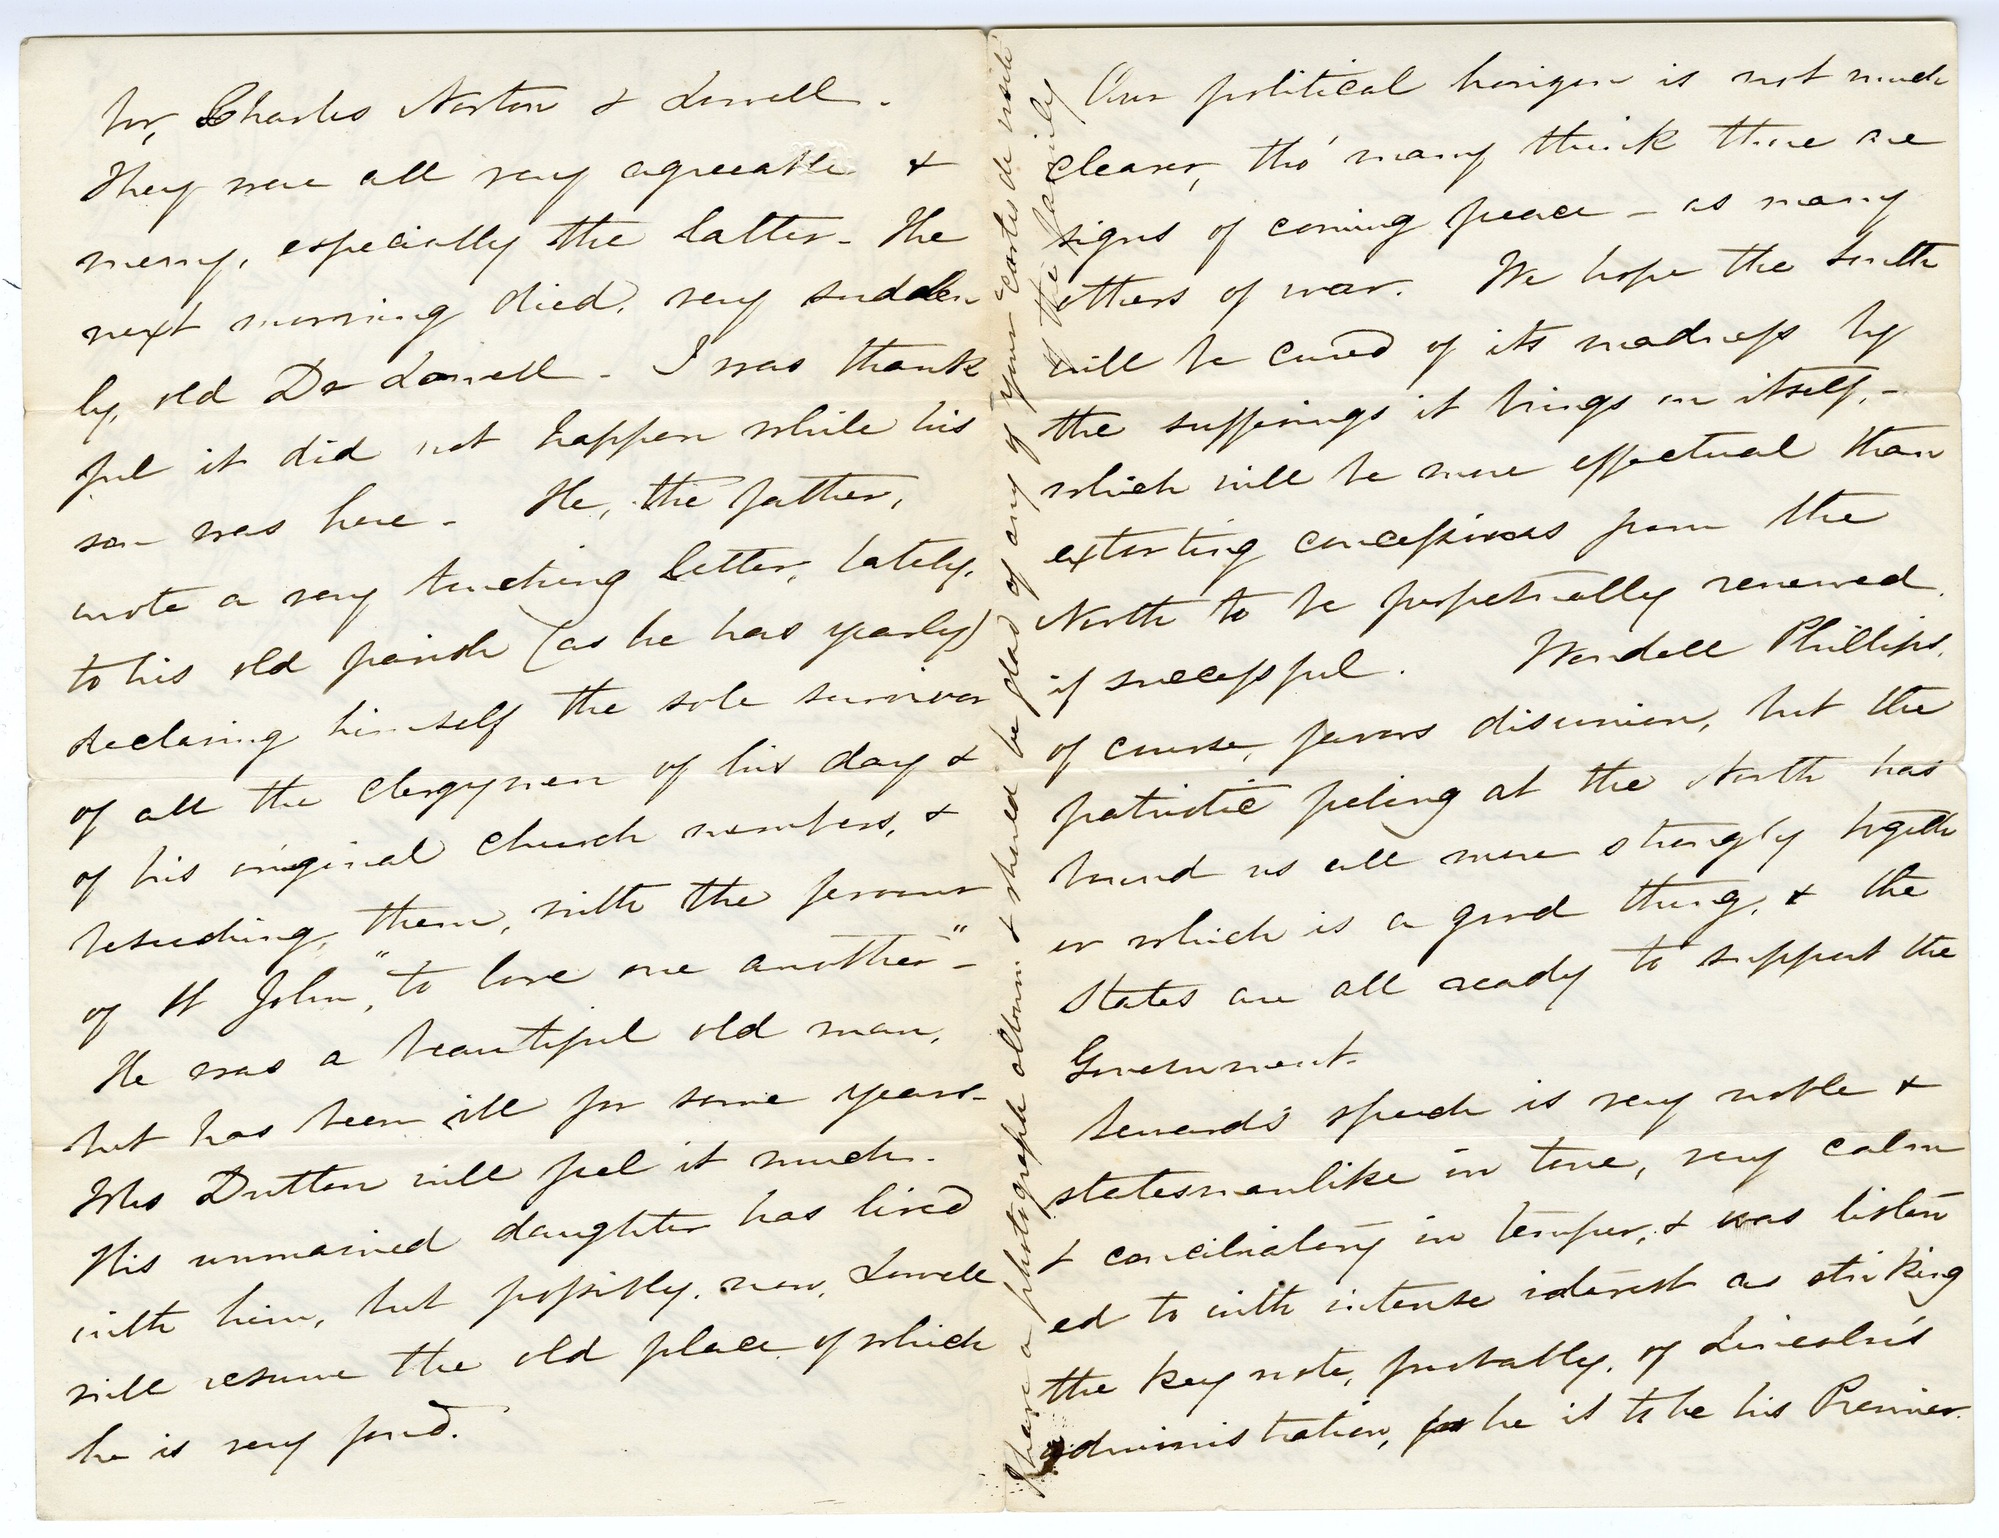 for, Charles Norton & Lowell.
They were all very agreeable &
merry, especially the latter - The
next morning died, very sudden
ly, old Dr Lowell - I was thank
ful it did not happen while his
son was here - He, the father,
wrote a very touching letter, lately,
to his old parish (as he has yearly)
declaring himself the sole survivor
of all the clergymen of his day &
of his original church members, &
beseeching, them, with the fervour
of St John, "to love one another" -
He was a beautiful old man,
but has been ill for some years -
Mrs Dutton will feel it much.
His unmarried daughter has lived
with him, but possibly, now, Lowell
will resume the old place of which
he is very fond.
I have a photograph album & should be glad of any of your "cartes de visite"
of the family
Our political horizon is not much
clearer, tho' many think there are
signs of coming peace - as many
others of war. We hope the South
will be cured of its madness by
the sufferings it brings on itself, -
which will be more effectual than
extorting concessions from the
North to be perpetually renewed
if successful. Wendell Phillips,
of course, favors disunion, but the
patriotic feeling at the North has
bound us all more strongly togeth
er which is a good thing, & the
States are all ready to support the
Government.
Seward's speech is very noble &
statesmanlike in tone, very calm
& conciliatory in temper, & was listen
ed to with intense interest as striking
the key note, probably, of Lincoln's
administration, for he is to be his Premier.